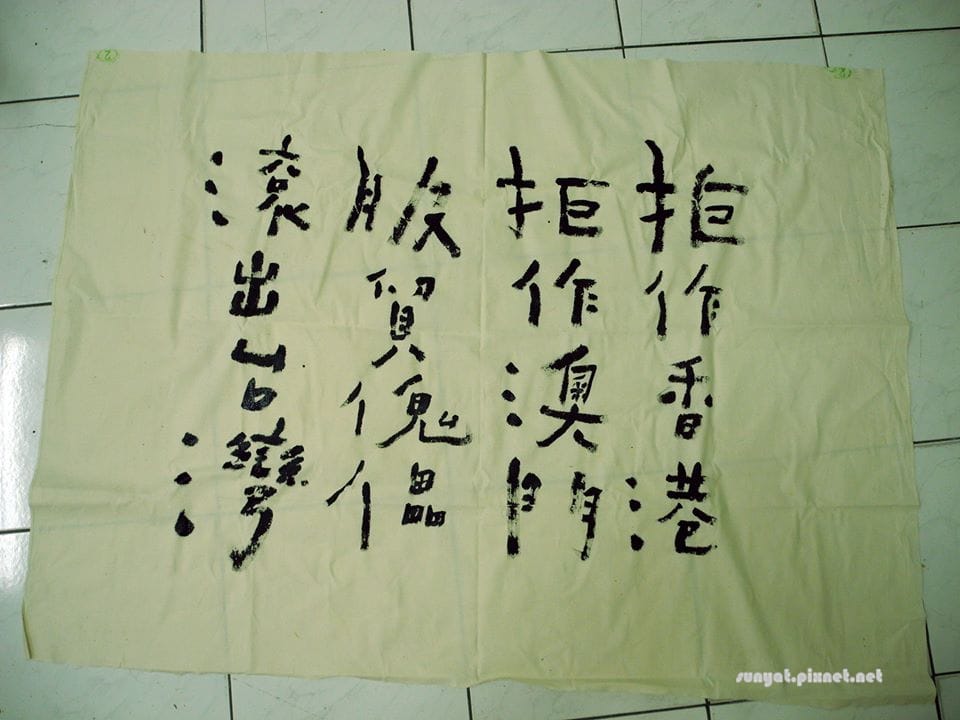 拒作香港
拒作澳門
服貿傀儡
滾出台灣
sunyat.pixnet.net